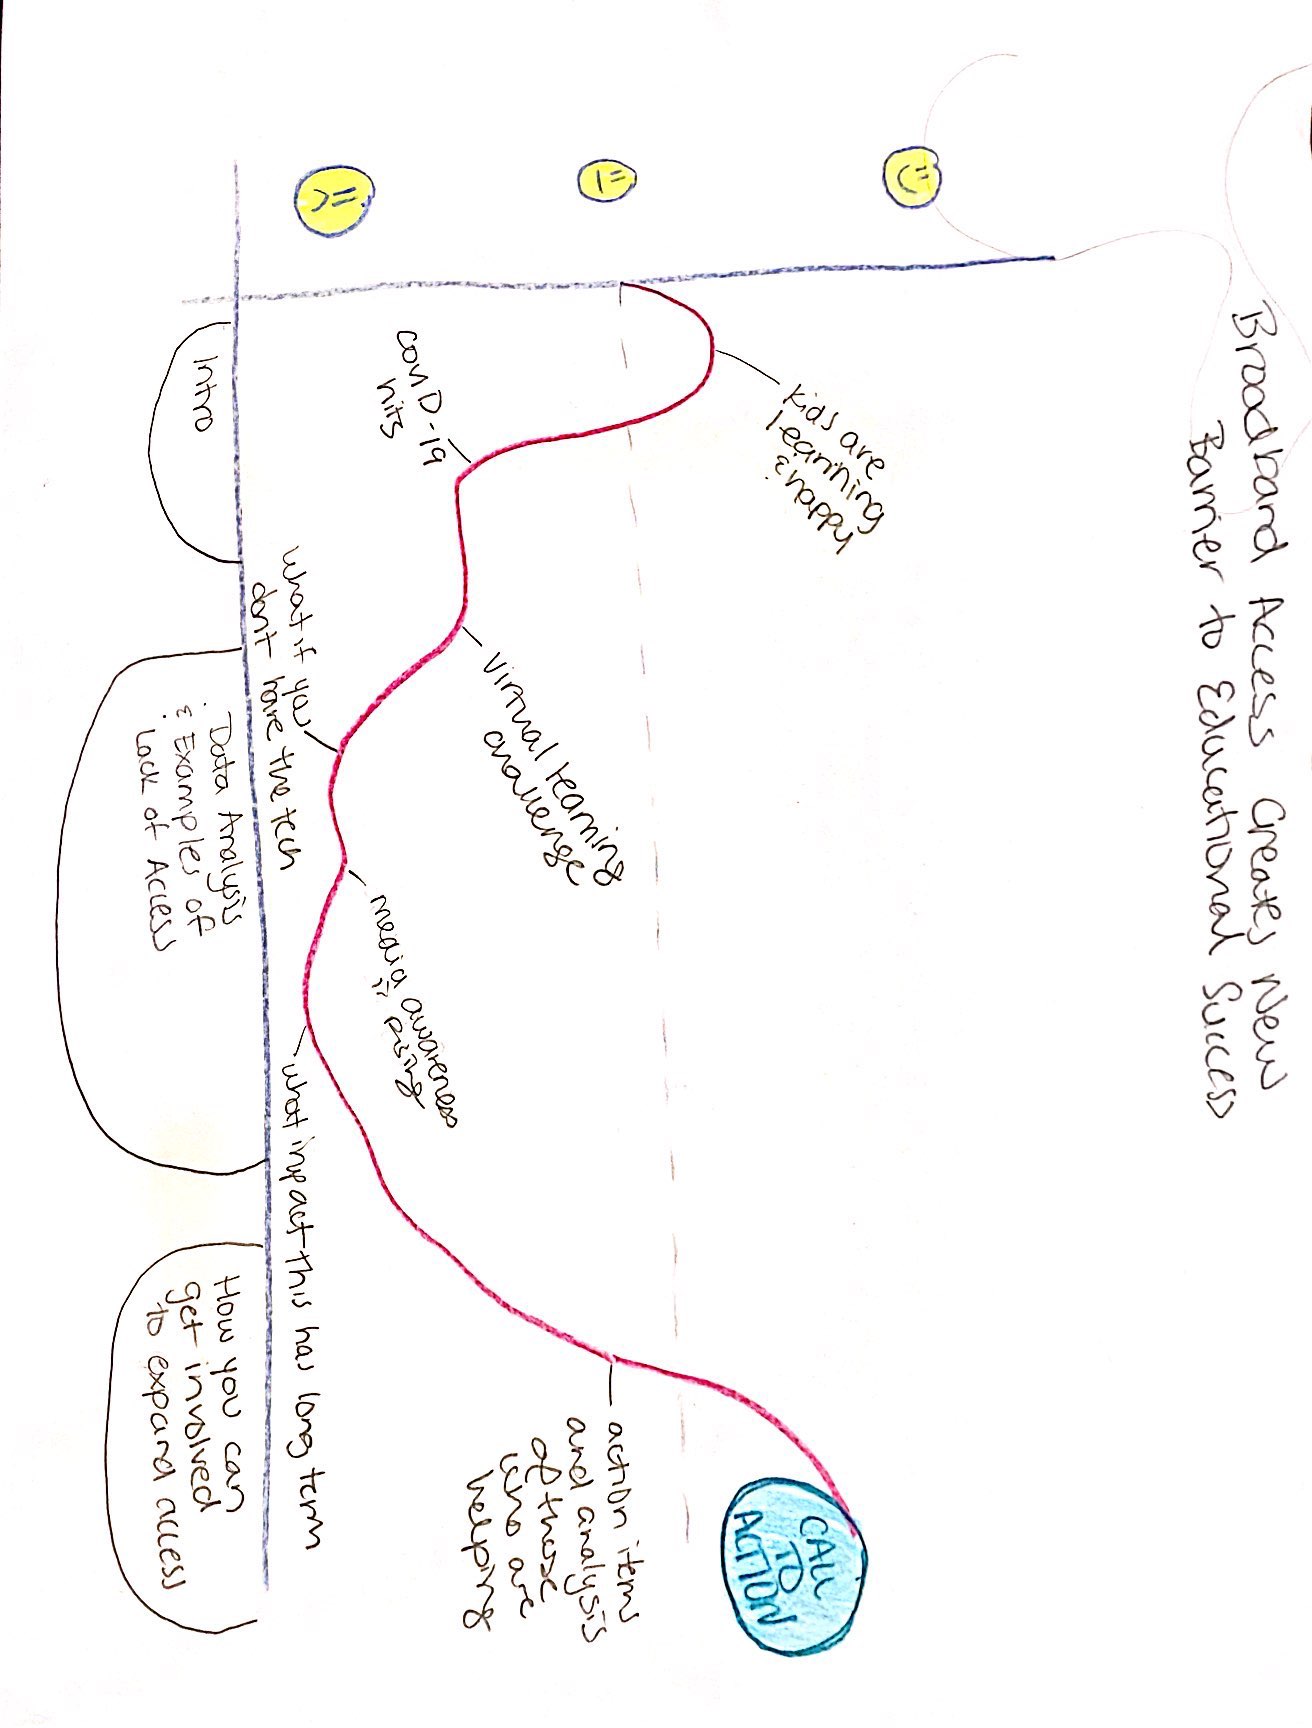 Broadband Access Creates New
Barrier to Educational Success
=)
=|
=<
kids are
learining
& happy
COVID-19
hits
virtual learning
challenge
what if you
don't have the tech
media awareness
is rising
what impact this has long term
action items
and analysis
of those
who are
helping
CALL
TO
ACTION
Intro
Data Analysis
& Examples of
Lack of Access
How you can
get involved
to expand access